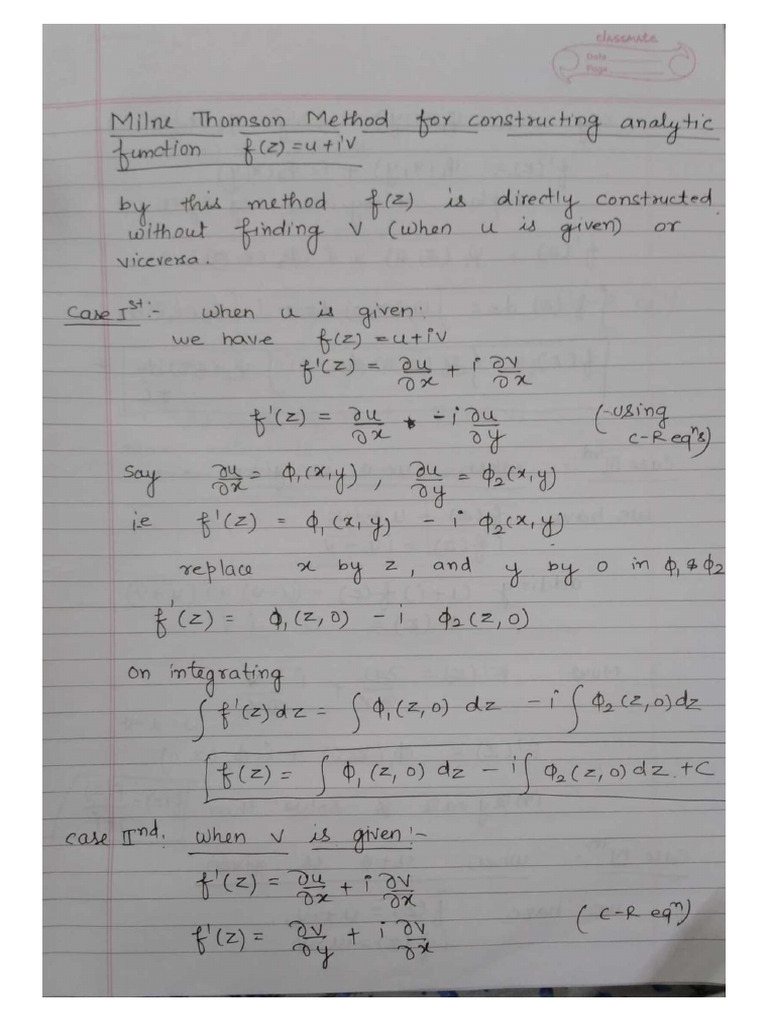 classmate
Date
Page
Milne Thomson Method for constructing analytic
function f(z) = u+iv
by this method f(z) is directly constructed
without finding v (when u is given) or
viceversa.
Case Iˢᵗ:- when u is given:
we have f(z) = u+iv
f'(z) = ∂u/∂x + i ∂v/∂x
f'(z) = ∂u/∂x - i ∂u/∂y (-using C-R eqⁿs)
Say ∂u/∂x = ϕ₁(x,y) , ∂u/∂y = ϕ₂(x,y)
i.e f'(z) = ϕ₁(x,y) - i ϕ₂(x,y)
replace x by z, and y by 0 in ϕ₁ & ϕ₂
f'(z) = ϕ₁(z,0) - i ϕ₂(z,0)
on integrating
∫f'(z)dz = ∫ϕ₁(z,0) dz - i∫ϕ₂(z,0)dz
f(z) = ∫ϕ₁(z,0) dz - i∫ϕ₂(z,0)dz +C
Case IIⁿᵈ. when v is given:-
f'(z) = ∂u/∂x + i ∂v/∂x
f'(z) = ∂v/∂y + i ∂v/∂x (C-R eqⁿ)